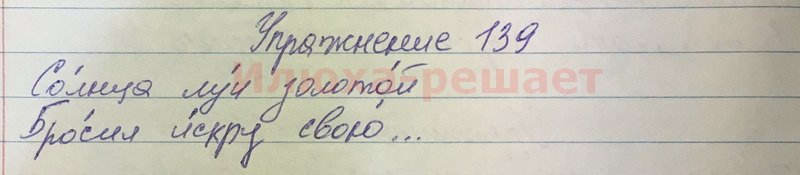 Упражнение 139
Илюха-решает
Со́лнца лу́ч золото́й
Бро́сил и́скру свою́...